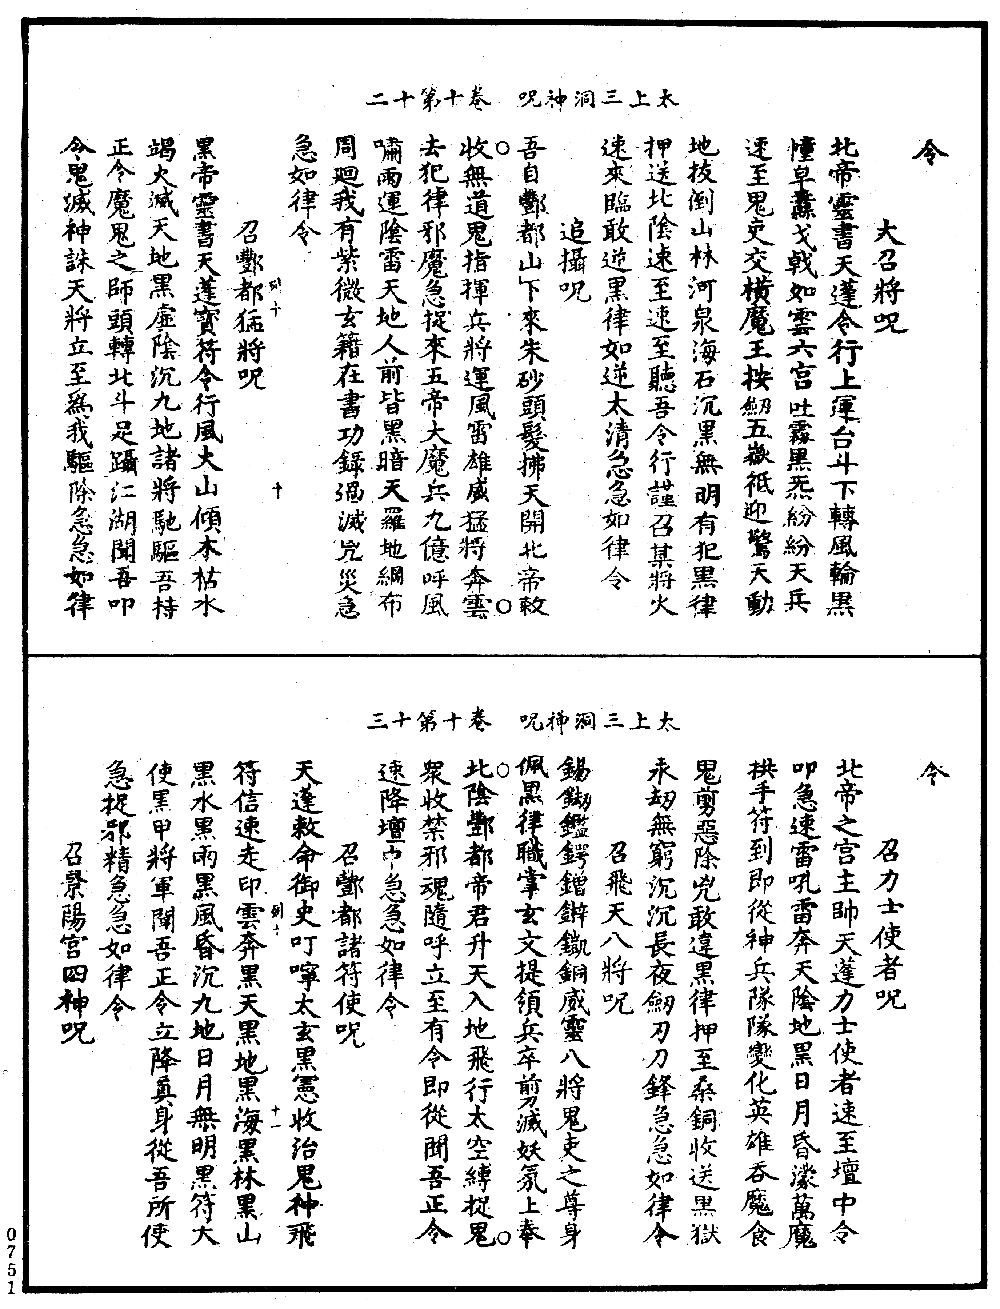 太上三洞神呪　卷十第十二
令
大召將呪
北帝靈書天蓬令行上運台斗下轉風輪黑
幢皁纛戈戟如雲六宮吐霧黑炁紛紛天兵
速至鬼吏交横魔王按劒五嶽祗迎驚天動
地拔倒山林河泉海石沉黑無明有犯黑律
押送北陰速至速至聽吾令行謹召某將火
速來臨敢逆黑律如逆太清急急如律令
追攝呪
吾自酆都山下來朱砂頭髮拂天開北帝敕
收無道鬼指揮兵將運風雷雄威猛將奔雲
去犯律邪魔急捉來五帝大魔兵九億呼風
嘯雨運陰雷天地人前皆黑暗天羅地網布
周廻我有紫微玄籍在書功錄過滅兇災急
急如律令
列十
十
召酆都猛將呪
黑帝靈書天蓬寳符令行風火山傾木枯水
竭火滅天地黑虛陰沉九地諸將馳驅吾持
正令魔鬼之師頭轉北斗足躡江湖聞吾叩
令鬼滅神誅天將立至爲我驅除急急如律
太上三洞神呪　卷十第十三
令
召力士使者呪
北帝之宮主帥天蓬力士使者速至壇中令
叩急速雷吼雷奔天陰地黑日月昏濛萬魔
拱手符到即從神兵隊隊變化英雄吞魔食
鬼剪惡除兇敢違黑律押至桑銅收送黑獄
永劫無窮沉沉長夜劒刃刀鋒急急如律令
召飛天八將呪
威靈八將鬼吏之尊身
佩黑律職掌玄文提領兵卒剪滅妖氛上奉
北陰酆都帝君升天入地飛行太空縛捉鬼
衆收禁邪魂隨呼立至有令即從聞吾正令
速降壇中急急如律令
召酆都諸符使呪
天蓬敕命御史叮嚀太玄黑憲收治鬼神飛
符信速走印雲奔黑天黑地黑海黑林黑山
列十
十一
黑水黑雨黑風昏沉九地日月無明黑符大
使黑甲將軍聞吾正令立降真身從吾所使
急捉邪精急急如律令
召景陽宮四神呪
0751